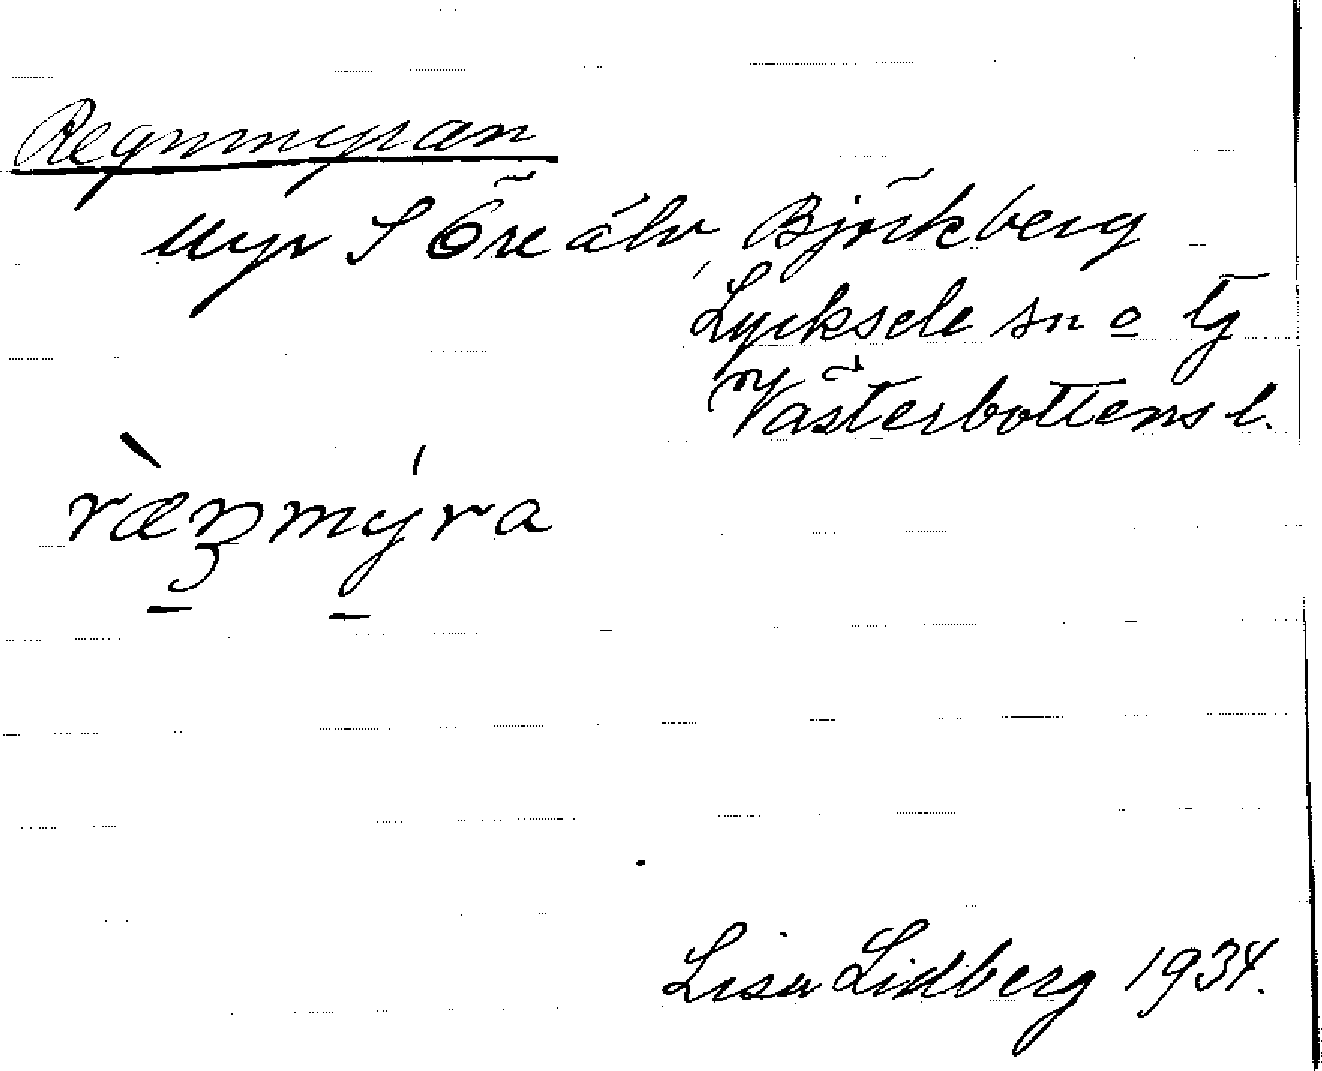 Regnmyran
Myr S Öre älv, Björkberg
Lycksele sn o tg
Västerbottens l.
ræŋmýra
Lisa Lidberg 1934.